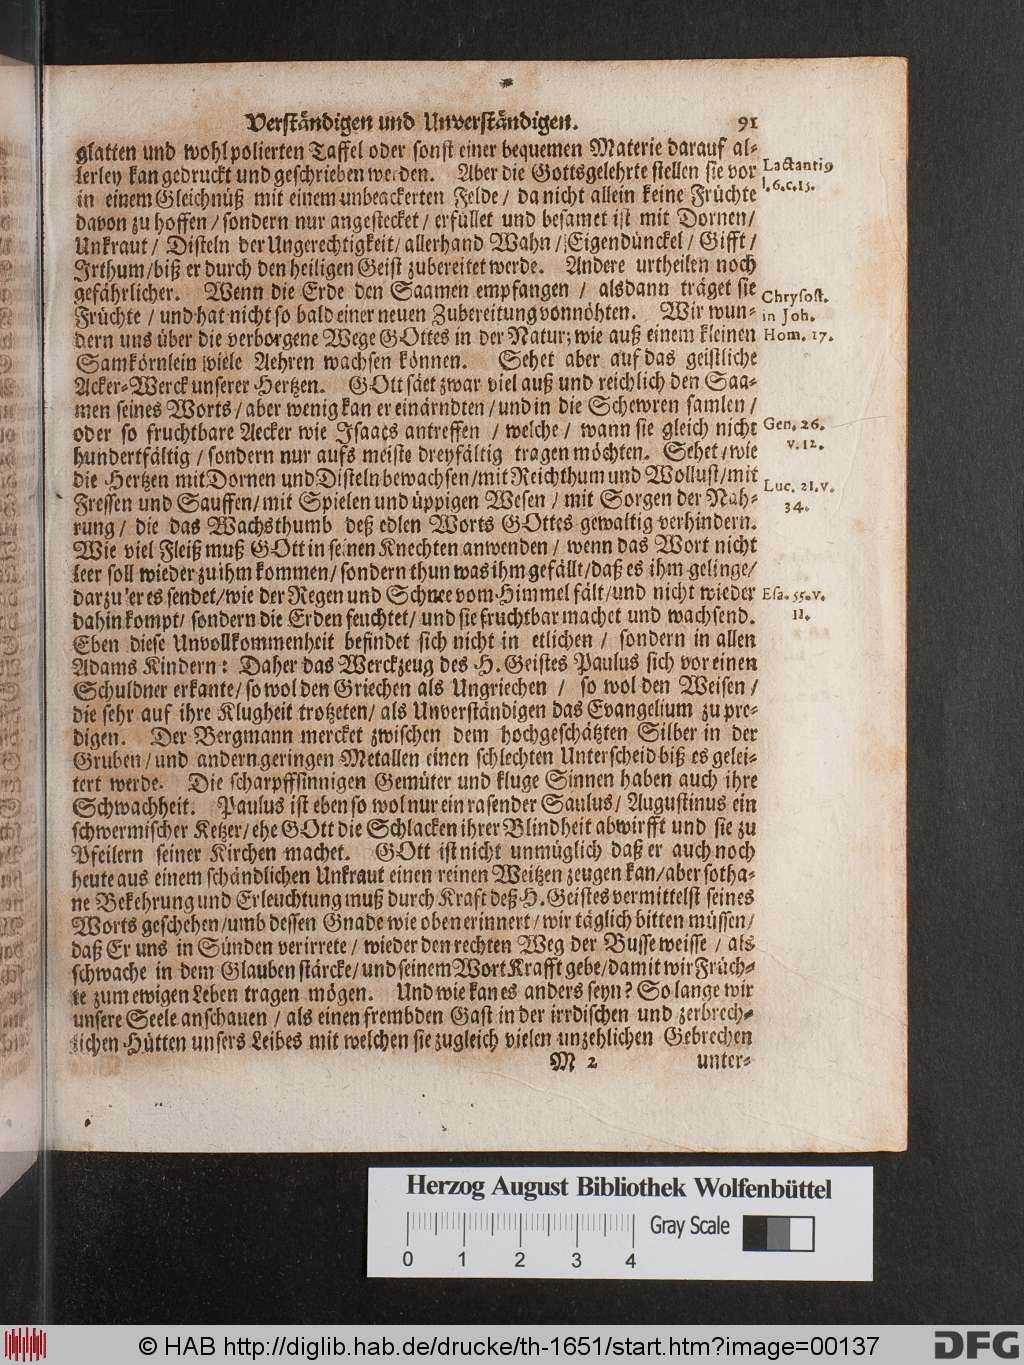 Verständigen und Unverständigen. 91
glatten und wohl polierten Taffel oder sonst einer bequemen Materie darauf al-
lerley kan gedruckt und geschrieben werden. Aber die Gottsgelehrte stellen sie vor
in einem Gleichnüß mit einem unbeackerten Felde / da nicht allein keine Früchte
davon zu hoffen / sondern nur angestecket / erfüllet und besamet ist mit Dornen /
Unkraut / Disteln der Ungerechtigkeit / allerhand Wahn / Eigendünckel / Gifft /
Irthum / biß er durch den heiligen Geist zubereitet werde. Andere urtheilen noch
gefährlicher. Wenn die Erde den Saamen empfangen / alsdann träget sie
Früchte / und hat nicht so bald einer neuen Zubereitung vonnöhten. Wir wun-
dern uns über die verborgene Wege GOttes in der Natur; wie auß einem kleinen
Samkörnlein viele Aehren wachsen können. Sehet aber auf das geistliche
Acker-Werck unserer Hertzen. GOtt säet zwar viel auß und reichlich den Saa-
men seines Worts / aber wenig kan er einärndten / und in die Schewren samlen /
oder so fruchtbare Aecker wie Isaacs antreffen / welche / wann sie gleich nicht
hundertfältig / sondern nur aufs meiste dreyfältig tragen möchten. Sehet / wie
die Hertzen mit Dornen und Disteln bewachsen / mit Reichthum und Wollust / mit
Fressen und Sauffen / mit Spielen und üppigen Wesen / mit Sorgen der Nah-
rung / die das Wachsthumb deß edlen Worts GOttes gewaltig verhindern.
Wie viel Fleiß muß GOtt in seinen Knechten anwenden / wenn das Wort nicht
leer soll wieder zu ihm kommen / sondern thun was ihm gefällt / daß es ihm gelinge /
darzu er es sendet / wie der Regen und Schnee vom Himmel fält / und nicht wieder
dahin kompt / sondern die Erden feuchtet / und sie fruchtbar machet und wachsend.
Eben diese Unvollkommenheit befindet sich nicht in etlichen / sondern in allen
Adams Kindern: Daher das Werckzeug des H. Geistes Paulus sich vor einen
Schuldner erkante / so wol den Griechen als Ungriechen / so wol den Weisen /
die sehr auf ihre Klugheit trotzeten / als Unverständigen das Evangelium zu pre-
digen. Der Bergmann mercket zwischen dem hochgeschätzten Silber in der
Gruben / und andern geringen Metallen einen schlechten Unterscheid biß es gelei-
tert werde. Die scharpffsinnigen Gemüter und kluge Sinnen haben auch ihre
Schwachheit. Paulus ist eben so wol nur ein rasender Saulus / Augustinus ein
schwermischer Ketzer / ehe GOtt die Schlacken ihrer Blindheit abwirfft und sie zu
Pfeilern seiner Kirchen machet. GOtt ist nicht unmüglich daß er auch noch
heute aus einem schändlichen Unkraut einen reinen Weitzen zeugen kan / aber sotha-
ne Bekehrung und Erleuchtung muß durch Kraft deß H. Geistes vermittelst seines
Worts geschehen / umb dessen Gnade wie oben erinnert / wir täglich bitten müssen /
daß Er uns in Sünden verirrete / wieder den rechten Weg der Busse weisse / als
schwache in dem Glauben stärcke / und seinem Wort Krafft gebe / damit wir Früch-
te zum ewigen Leben tragen mögen. Und wie kan es anders seyn? So lange wir
unsere Seele anschauen / als einen frembden Gast in der irrdischen und zerbrech-
lichen Hütten unsers Leibes mit welchen sie zugleich vielen unzehlichen Gebrechen
M 2 unter-
Lactantiꝰ
l. 6. c. 15.
Chrysost.
in Joh.
Hom. 17.
Gen. 26.
v. 12.
Luc. 21. v.
34.
Esa. 55. v.
11.
Herzog August Bibliothek Wolfenbüttel
Gray Scale
0 1 2 3 4
© HAB http://diglib.hab.de/drucke/th-1651/start.htm?image=00137
DFG